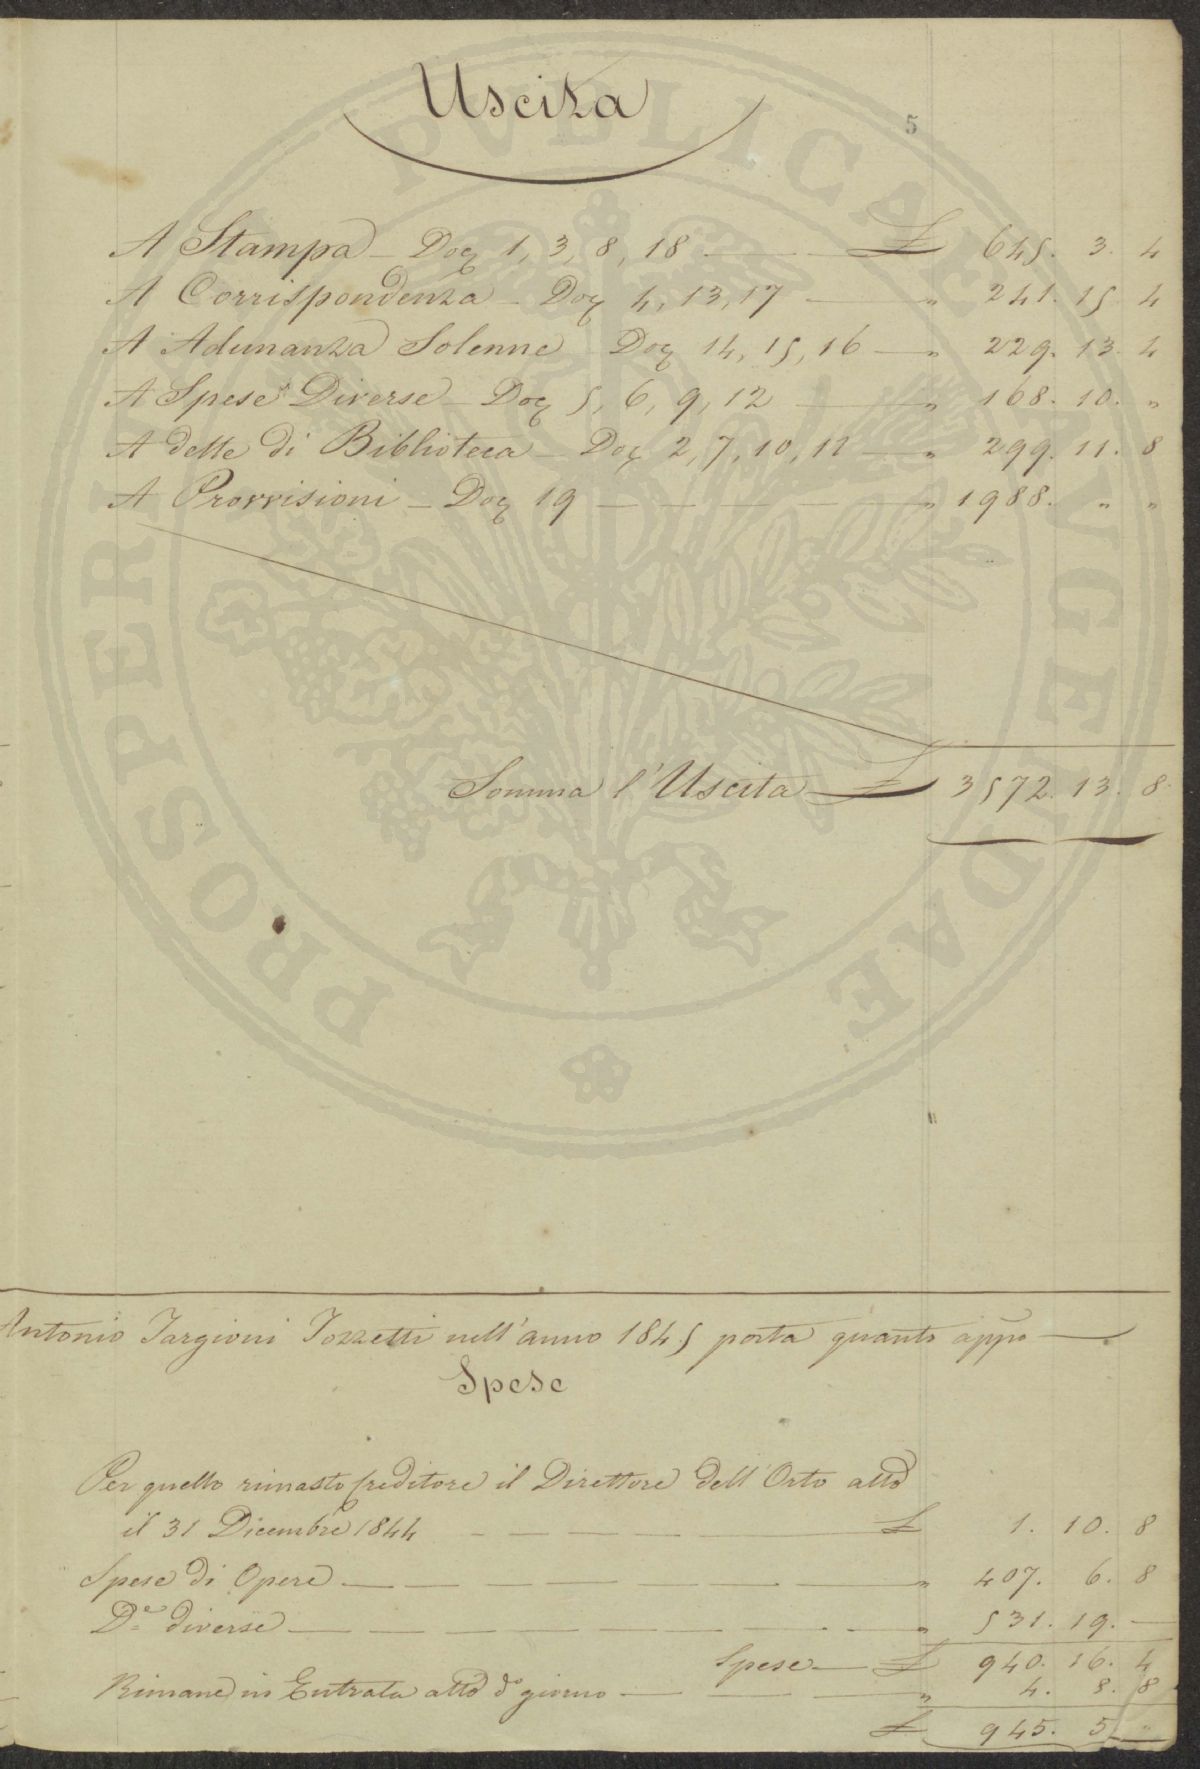 Uscita
5
A Stampa – Doc 1, 3, 8, 18 — £ 645. 3. 4
A Corrispondenza – Doc 4, 13, 17 — " 241. 15. 4
A Adunanza Solenne Doc 14, 15, 16 — " 229. 13. 4
A Spese Diverse – Doc 5, 6, 9, 12 — " 168. 10. "
A dette di Biblioteca – Doc 2, 7, 10, 11 — " 299. 11. 8
A Provvisioni – Doc 19 — " 1988. " "
Somma l'Uscita — £ 3572. 13. 8
Antonio Targioni Tozzetti nell'anno 1845 porta quanto appo
Spese
Per quello rimasto Creditore il Direttore dell'Orto atto
il 31 Dicembre 1844 — £ 1. 10. 8
Spese di Opere — " 407. 6. 8
De diverse — " 531. 19. —
Spese — £ 940. 16. 4
Rimane in Entrata atto do giorno — " 4. 8. 8
£ 945. 5. "
PROSPERITATI PVBLICAE AVGENDAE